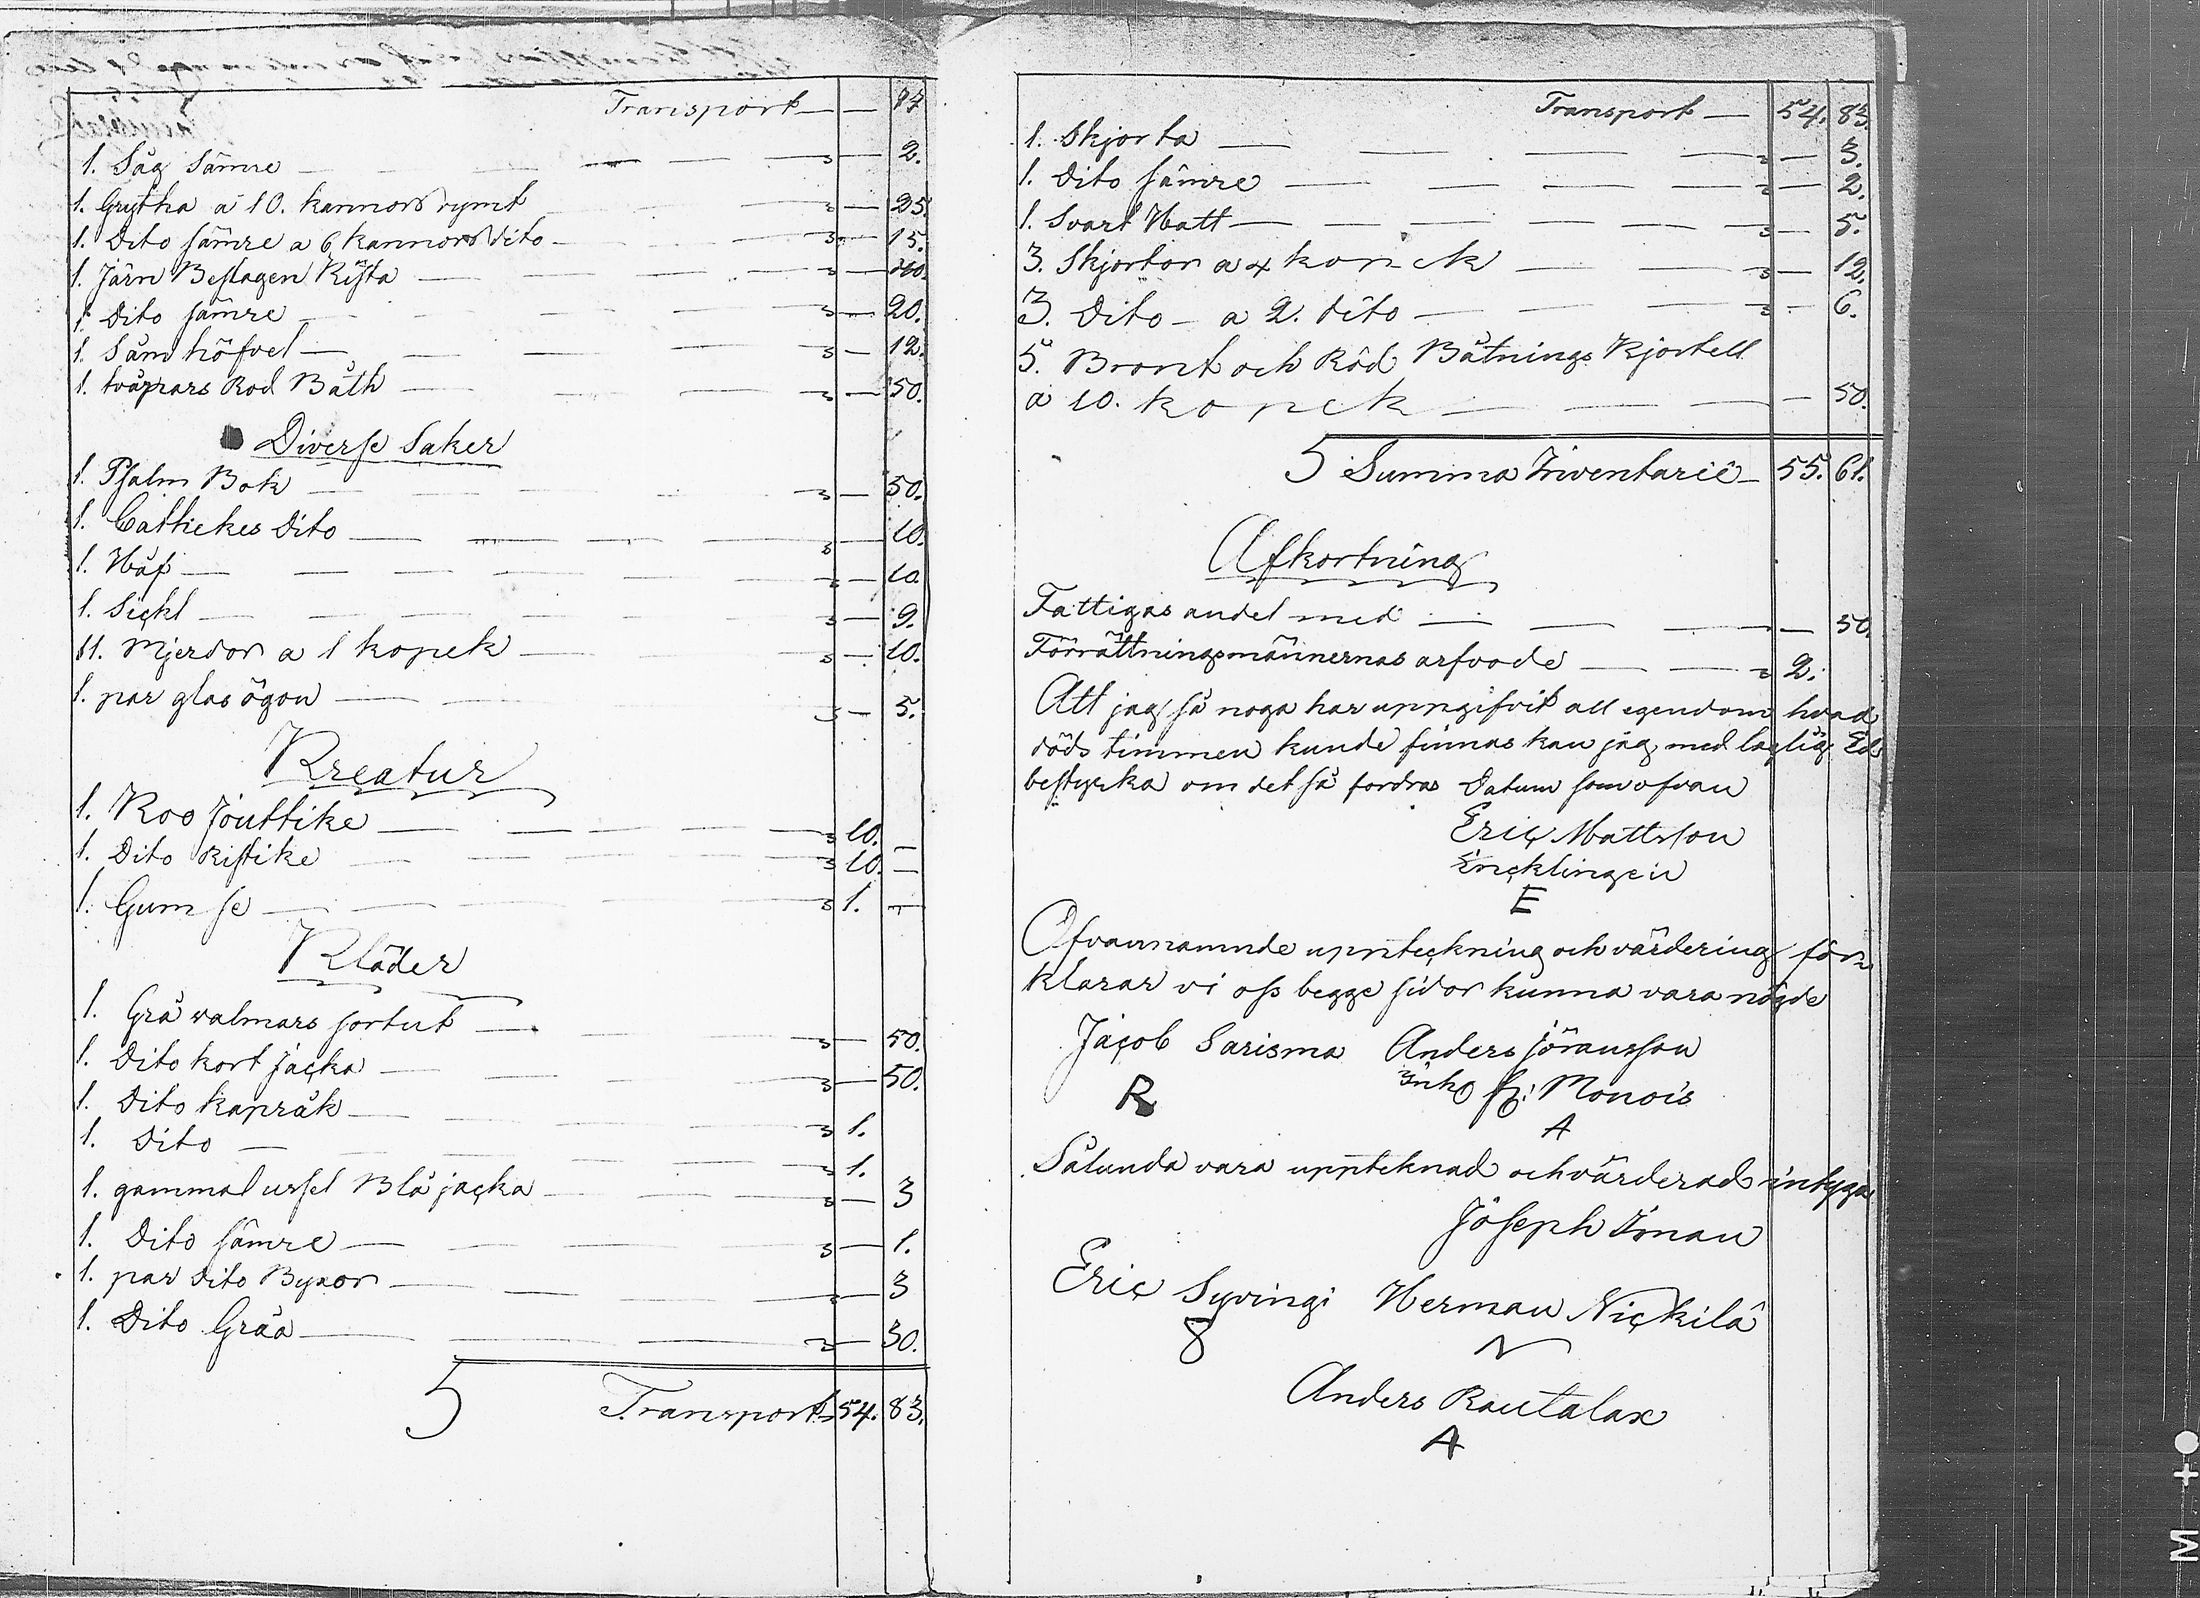 Transport — — 97
1. Såg Sämre — 2.
1. Grytha a 10. kannors rymt — 25.
1. Dito sämre a 6 kannors dito — 15.
1. Järn Beslagen Kista —
1. Dito sämre — 20.
1. Såm höfvel — 12.
1. tväprars Rod Båth — 50.
Diverse Saker
1. Psalm Bok — 50.
1. Cathekes Dito — 10.
1. Håf — 10
1. Sickl — 9.
11. Mjerdor a 1 kopek — 10.
1. par glas ögon — 5.
Kreatur
1. Koo Jouttike — 10. —
1. Dito Ristike — 10. —
1. Gumse — 1. —
Kläder
1. Grå valmars sortut — 50.
1. Dito kort jacka — 50.
1. Dito kapråk — 1.
1. Dito — 1.
1. gammal ussel Blå jacka — 3
1. Dito sämre — 1.
1. par Dito Byxor — 3
1. Dito Gråa — 30.
5 Transport 54. 83.
Transport — 54. 83.
1. Skjorta — 3.
1. Dito sämre — 2.
1. Svart Hatt — 5.
3. Skjortor a 4 kopek — 12.
3. Dito — a 2. dito — 6.
5. Bront och Röd Båtnings Kjortell
a 10. kopek — 50.
5 Summa Inventarie — 55. 61.
Afkortning
Fattigas andel med — 50.
Förrättningsmännernas arfvode — 2.
Att jag så noga har uppgifvit all egendom hvad
döds timmen kunde finnas kan jag med laglig Ed
bestyrka om det så fordras Datum som ofvan
Eric Mattsson
Encklingen
E
Ofvannamnde uppteckning och värdering för
klarar vi oss begge sidor kunna vara nögde
Jacob Sarisma Anders Jöransson
R Monois
A
Sålunda vara uppteknad och värderad intyga
Joseph Irnan
Eric Syvingi Herman Nickilä
8 N
Anders Rautalax
A
M